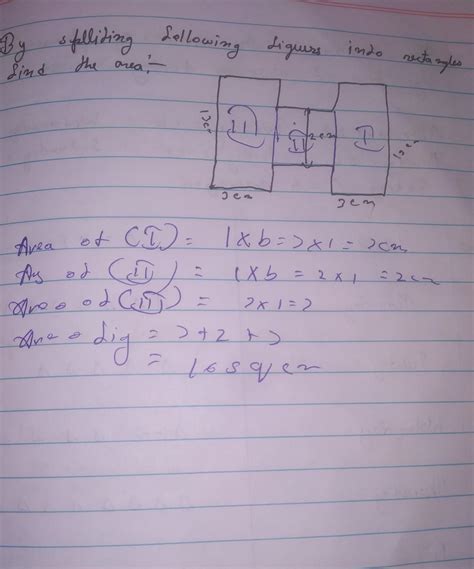 By spelliting following figuers into rectangles
find the area:-
1cm
II
ii
2cm
I
1cm
3cm
3cm
Area of (I) = l x b = 3 x 1 = 3cm
of (II) = l x b = 2 x 1 = 2cm
of (III) = 3 x 1 = 3
fig = 3 + 2 + 3
= sq cm